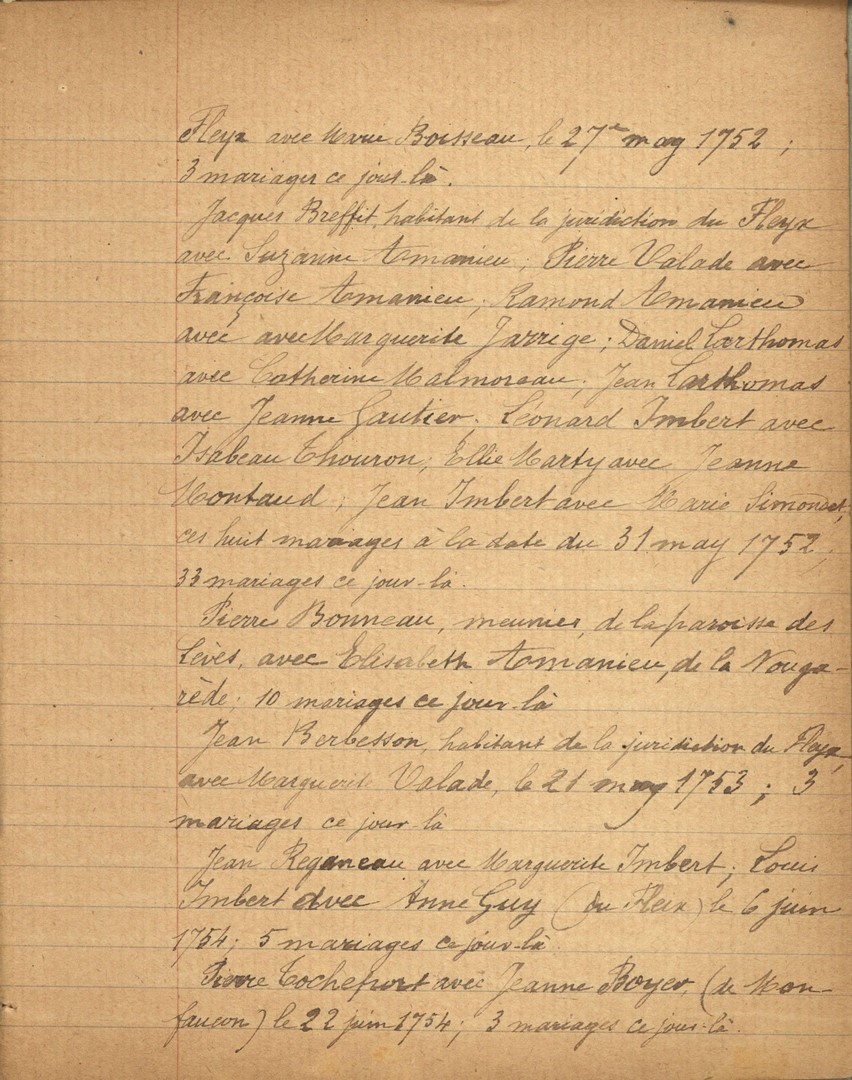 Fleyx avec Marie Boisseau, le 27e may 1752 ;
3 mariages ce jour-là.
Jacques Breffit, habitant de la juridiction du Fleyx
avec Suzanne Amanieu ; Pierre Valade avec
Françoise Amanieu ; Ramond Amanieu
avec avec Marguerite Jarrige ; Daniel Larthomas
avec Catherine Malmoreau ; Jean Larthomas
avec Jeanne Gautier ; Léonard Imbert avec
Isabeau Thouron ; Ellie Marty avec Jeanne
Montaud ; Jean Imbert avec Marie Simondet,
ces huit mariages à la date du 31 may 1752,
33 mariages ce jour-là.
Pierre Bonneau, meunier, de la paroisse des
Lèves, avec Elisabeth Amanieu, de la Nouga-
rède ; 10 mariages ce jour-là
Jean Berbesson, habitant de la juridiction du Fleyx,
avec Marguerite Valade, le 21 may 1753 ; 3
mariages ce jour-là
Jean Reganeau avec Marguerite Imbert ; Louis
Imbert avec Anne Guy (du Fleix) le 6 juin
1754 ; 5 mariages ce jour-là.
Pierre Rochefort avec Jeanne Boyer, (de Mon-
faucon) le 22 juin 1754 ; 3 mariages ce jour-là.